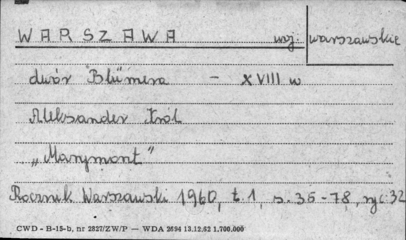 WARSZAWA woj: warszawskie
dwór Blümera - XVIII w
Aleksander Król
„Marymont"
Rocznik Warszawski 1960, t. 1, s. 35-78, ryc. 32
CWD - B-15-b, nr 2827/ZW/P — WDA 2694 13.12.62 1.700.000